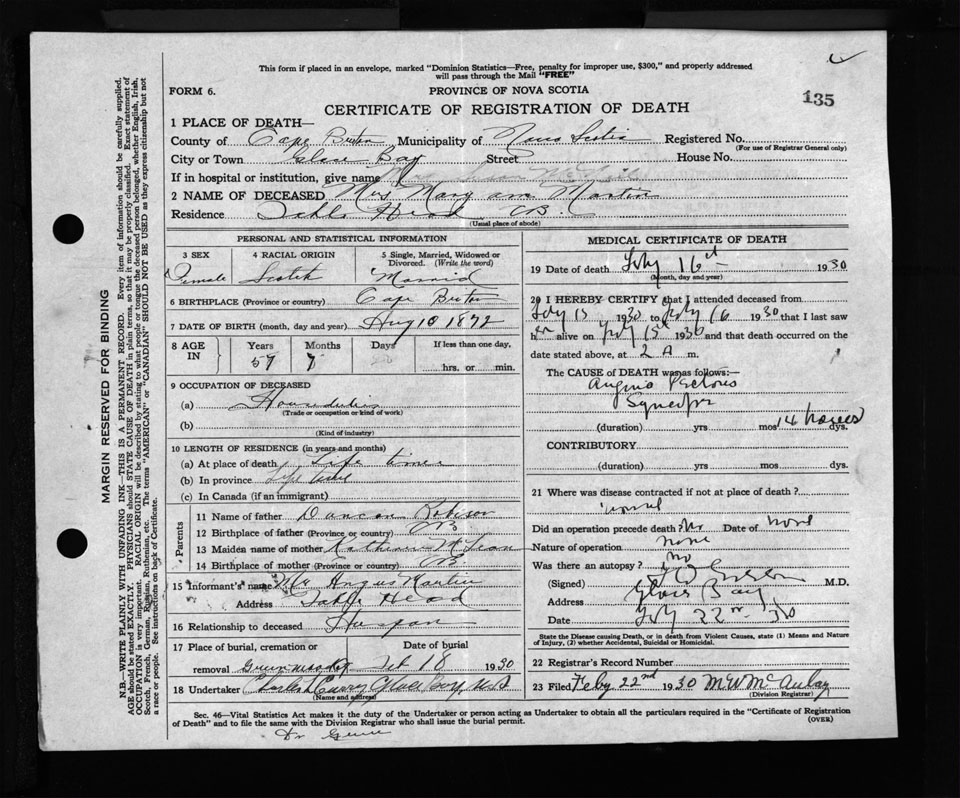 This form if placed in an envelope, marked "Dominion Statistics—Free, penalty for improper use, $300," and properly addressed
will pass through the Mail "FREE"
FORM 6.
PROVINCE OF NOVA SCOTIA
135
CERTIFICATE OF REGISTRATION OF DEATH
1 PLACE OF DEATH—
County of Cape Breton Municipality of Nova Scotia Registered No.
(For use of Registrar General only)
City or Town Glace Bay Street House No.
If in hospital or institution, give name
2 NAME OF DECEASED Mrs Mary ann Martin
Residence Table Head CB.
(Usual place of abode)
PERSONAL AND STATISTICAL INFORMATION
3 SEX 4 RACIAL ORIGIN 5 Single, Married, Widowed or Divorced. (Write the word)
Female Scotch Married
6 BIRTHPLACE (Province or country) Cape Breton
7 DATE OF BIRTH (month, day and year) Aug 10 1872
8 AGE IN Years Months Days If less than one day,
57 7 hrs. or min.
9 OCCUPATION OF DECEASED
(a)
(Trade or occupation or kind of work)
(b)
(Kind of industry)
10 LENGTH OF RESIDENCE (in years and months)
(a) At place of death Life time
(b) In province Life time
(c) In Canada (if an immigrant)
Parents
11 Name of father Duncan
12 Birthplace of father (Province or country) CB
13 Maiden name of mother McLean
14 Birthplace of mother (Province or country) CB.
15 Informant's name Mr Angus Martin
Address Table Head
16 Relationship to deceased
17 Place of burial, cremation or removal Date of burial
Greenwood Feb 18 1930
18 Undertaker Curry Glace Bay, N.S
(Name and address)
MEDICAL CERTIFICATE OF DEATH
19 Date of death Feby 16 1930
(Month, day and year)
20 I HEREBY CERTIFY that I attended deceased from
Feby 15 1930 to Feby 16 1930 that I last saw
her alive on Feby 15 1930 and that death occurred on the
date stated above, at 2 A m.
The CAUSE of DEATH was as follows:—
Angina Pectoris
(duration) yrs mos 14 hours dys.
CONTRIBUTORY
(duration) yrs mos dys.
21 Where was disease contracted if not at place of death?
Did an operation precede death? No Date of none
Nature of operation none
Was there an autopsy? no
(Signed) M.D.
Address Glace Bay
Date Feby 22 30
State the Disease causing Death, or in death from Violent Causes, state (1) Means and Nature
of Injury, (2) whether Accidental, Suicidal or Homicidal.
22 Registrar's Record Number
23 Filed Feby 22nd 1930 McAulay
(Division Registrar)
Sec. 46—Vital Statistics Act makes it the duty of the Undertaker or person acting as Undertaker to obtain all the particulars required in the "Certificate of Registration
of Death" and to file the same with the Division Registrar who shall issue the burial permit.
(OVER)
Dr
MARGIN RESERVED FOR BINDING
N.B.—WRITE PLAINLY WITH UNFADING INK—THIS IS A PERMANENT RECORD. Every item of information should be carefully supplied.
AGE should be stated EXACTLY. PHYSICIANS should STATE CAUSE OF DEATH in plain terms, so that it may be properly classified. Exact statement of
OCCUPATION is very important. RACIAL ORIGIN will be described by stating to what people or tongue the deceased person belonged, whether English, Irish,
Scotch, French, German, Russian, Ruthenian, etc. The terms "AMERICAN" or "CANADIAN" SHOULD NOT BE USED as they express citizenship but not
a race or people. See instructions on back of Certificate.